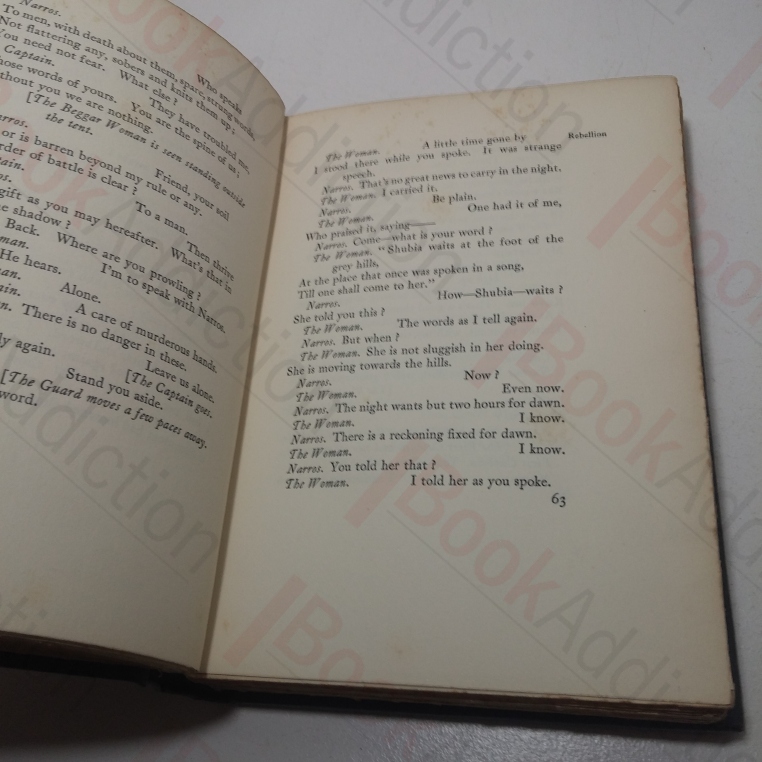 Narros.
Who speaks
To men, with death about them, spare, strung words,
Not flattering any, sobers and knits them up:
You need not fear. What else?
Captain.
They have troubled me,
those words of yours. You are the spine of us;
without you we are nothing.
[The Beggar Woman is seen standing outside
the tent.
Narros.
Friend, your soil
or is barren beyond my rule or any.
order of battle is clear?
Captain.
To a man.
Narros.
Then thrive
gift as you may hereafter. What's that in
the shadow?
Back. Where are you prowling?
I'm to speak with Narros.
He hears.
Alone.
A care of murderous hands.
There is no danger in these.
Leave us alone.
[The Captain goes.
ly again.
Stand you aside.
[The Guard moves a few paces away.
word.
Rebellion
The Woman. A little time gone by
I stood there while you spoke. It was strange
speech.
Narros. That's no great news to carry in the night.
The Woman. I carried it.
Narros. Be plain.
The Woman. One had it of me,
Who praised it, saying——
Narros. Come—what is your word?
The Woman. "Shubia waits at the foot of the
grey hills,
At the place that once was spoken in a song,
Till one shall come to her."
Narros. How—Shubia—waits?
She told you this?
The Woman. The words as I tell again.
Narros. But when?
The Woman. She is not sluggish in her doing.
She is moving towards the hills.
Narros. Now?
The Woman. Even now.
Narros. The night wants but two hours for dawn.
The Woman. I know.
Narros. There is a reckoning fixed for dawn.
The Woman. I know.
Narros. You told her that?
The Woman. I told her as you spoke.
63
BookAddiction